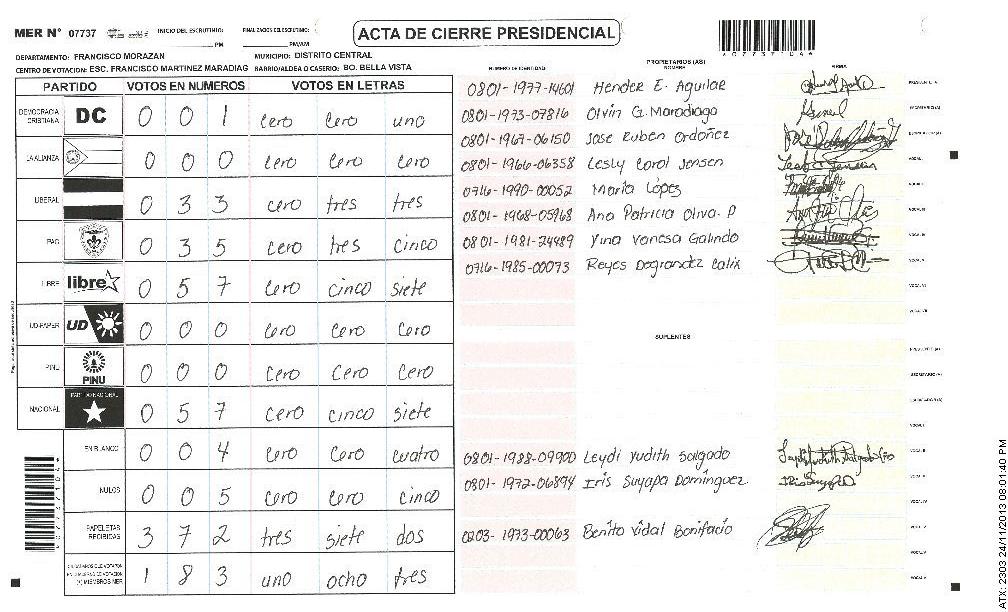 MER N° 07737 INICIO DEL ESCRUTINIO: PM FINALIZACION DEL ESCRUTINIO: PM/AM
ACTA DE CIERRE PRESIDENCIAL
DEPARTAMENTO: FRANCISCO MORAZAN MUNICIPIO: DISTRITO CENTRAL
CENTRO DE VOTACION: ESC. FRANCISCO MARTINEZ MARADIAG BARRIO/ALDEA O CASERIO: BO. BELLA VISTA
PARTIDO VOTOS EN NUMEROS VOTOS EN LETRAS
DEMOCRACIA CRISTIANA DC 0 0 1 cero cero uno
LA ALIANZA 0 0 0 cero cero cero
LIBERAL 0 3 3 cero tres tres
PAC 0 3 5 cero tres cinco
LIBRE libre 0 5 7 cero cinco siete
UD-FAPER UD 0 0 0 cero cero cero
PINU PINU 0 0 0 cero cero cero
NACIONAL PARTIDO NACIONAL 0 5 7 cero cinco siete
EN BLANCO 0 0 4 cero cero cuatro
NULOS 0 0 5 cero cero cinco
PAPELETAS RECIBIDAS 3 7 2 tres siete dos
CIUDADANOS QUE VOTARON (+) MIEMBROS MER 1 8 3 uno ocho tres
NUMERO DE IDENTIDAD PROPIETARIOS (AS) NOMBRE FIRMA
0801-1977-14601 Hender E. Aguilar
0801-1973-07816 Olvin G. Maradiaga
0801-1967-06150 Jose Ruben Ordoñez
0801-1966-06358 Lesly Carol Jensen
0716-1990-00052 Maria López
0801-1968-05968 Ana Patricia Oliva. P
0801-1981-24489 Yina Vanesa Galindo
0716-1985-00073 Reyes Degrandez Calix
SUPLENTES
0801-1988-09900 Leydi Yudith Salgado
0801-1972-06894 Iris Suyapa Domínguez
0203-1973-00063 Benito Vidal Bonifacio
ATX: 2303 24/11/2013 08:01:40 PM